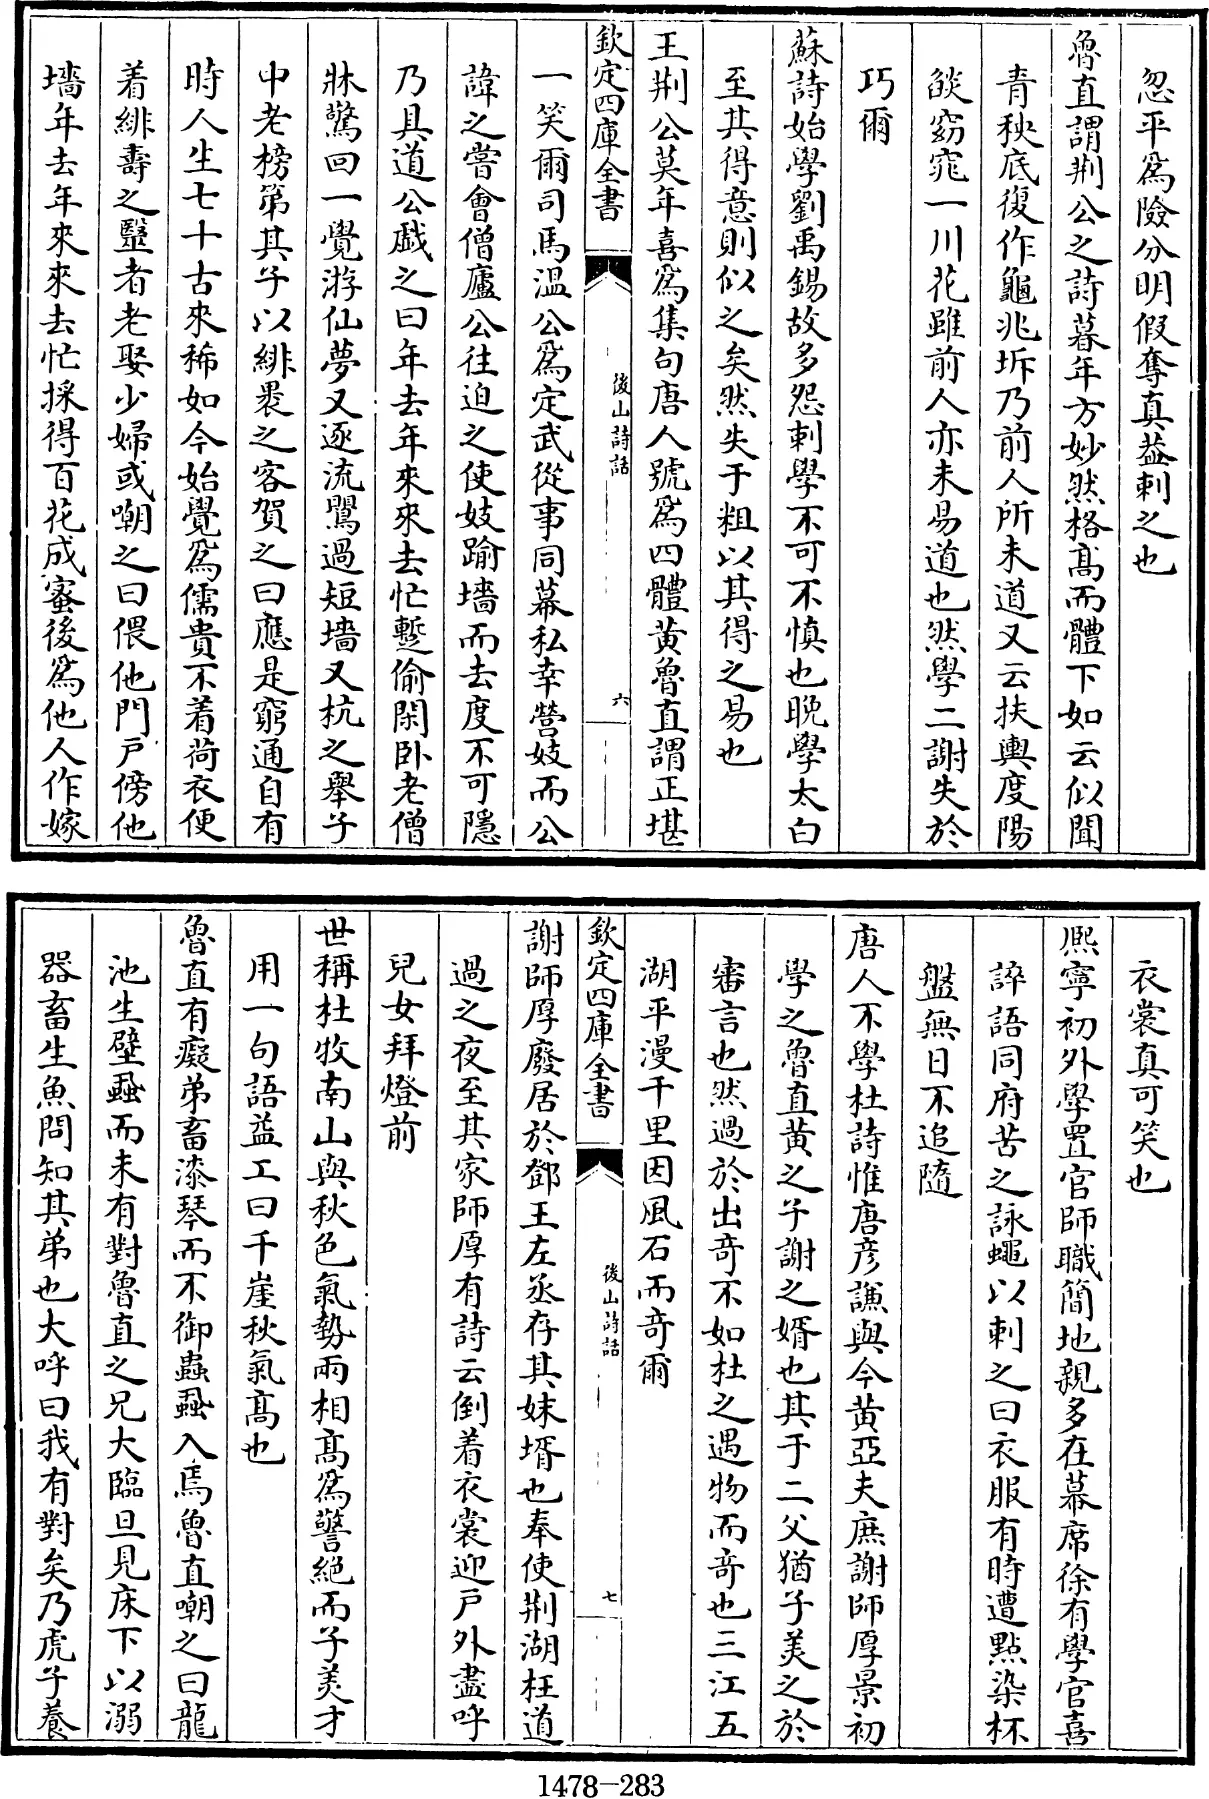 忽平為險分明假奪真葢刺之也
魯直謂荆公之詩暮年方妙然格髙而體下如云似聞
青秧底復作龜兆坼乃前人所未道又云扶輿度陽
燄窈窕一川花雖前人亦未易道也然學二謝失於
巧爾
蘇詩始學劉禹錫故多怨刺學不可不慎也晚學太白
至其得意則似之矣然失于粗以其得之易也
王荆公莫年喜為集句唐人號為四體黄魯直謂正堪
欽定四庫全書
後山詩話
六
一笑爾司馬温公為定武從事同幕私幸營妓而公
諱之嘗會僧廬公往迫之使妓踰墻而去度不可隱
乃具道公戯之曰年去年來來去忙蹔偷閑卧老僧
牀驚回一覺游仙夢又逐流鶯過短墻又杭之舉子
中老榜第其子以緋裹之客賀之曰應是窮通自有
時人生七十古來稀如今始覺為儒貴不着荷衣便
着緋壽之毉者老娶少婦或嘲之曰偎他門戸傍他
墻年去年來來去忙採得百花成蜜後為他人作嫁
衣裳真可笑也
熈寧初外學置官師職簡地親多在幕席徐有學官喜
誶語同府苦之詠蠅以刺之曰衣服有時遭點染杯
盤無日不追隨
唐人不學杜詩惟唐彦謙與今黄亞夫庶謝師厚景初
學之魯直黄之子謝之婿也其于二父猶子美之於
審言也然過於出竒不如杜之遇物而竒也三江五
湖平漫千里因風石而竒爾
欽定四庫全書
後山詩話
七
謝師厚廢居於鄧王左丞存其妹壻也奉使荆湖枉道
過之夜至其家師厚有詩云倒着衣裳迎戸外盡呼
兒女拜燈前
世稱杜牧南山與秋色氣勢兩相髙為警絶而子美才
用一句語益工曰千崖秋氣髙也
魯直有癡弟畜漆琴而不御蟲蝨入焉魯直嘲之曰龍
池生壁蝨而未有對魯直之兄大臨旦見床下以溺
器畜生魚問知其弟也大呼曰我有對矣乃虎子養
1478-283